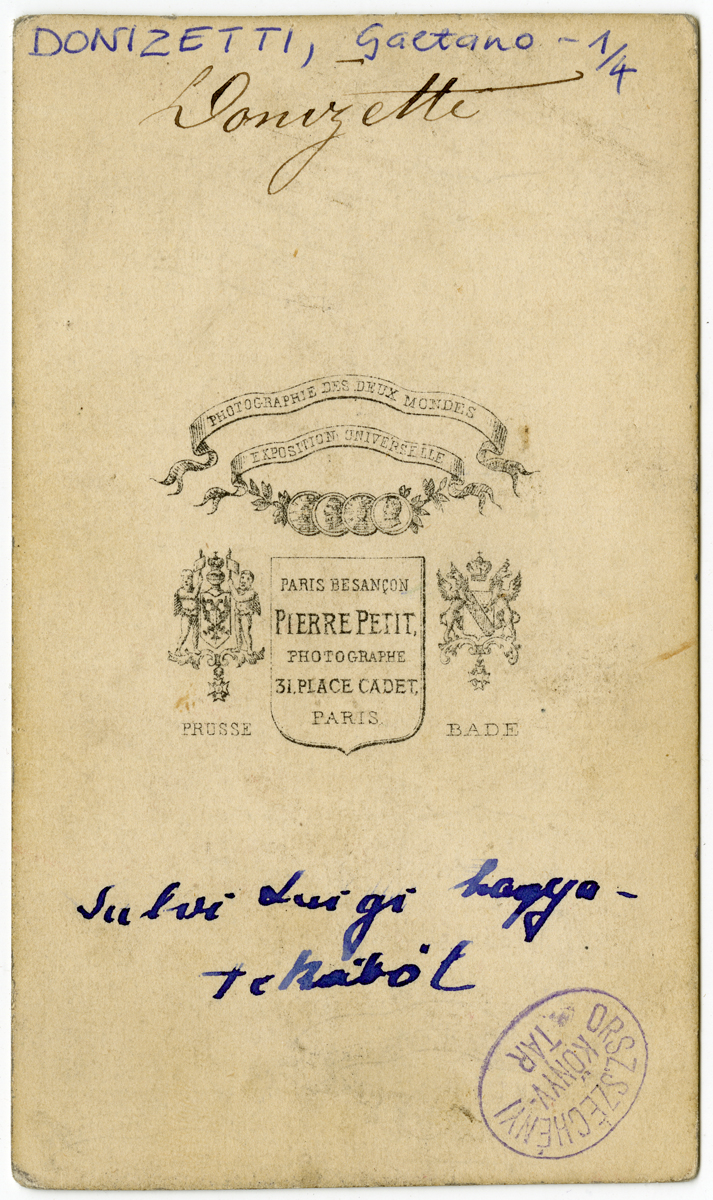 DONIZETTI, Gaetano - 1/4
Donizetti
PHOTOGRAPHIE DES DEUX MONDES
EXPOSITION UNIVERSELLE
PARIS BESANÇON
PIERRE PETIT,
PHOTOGRAPHE
31, PLACE CADET,
PARIS
PRUSSE
BADE
Salvi Luigi hagya-
tékából
ORSZ. SZÉCHÉNYI
KÖNYV-
TÁR